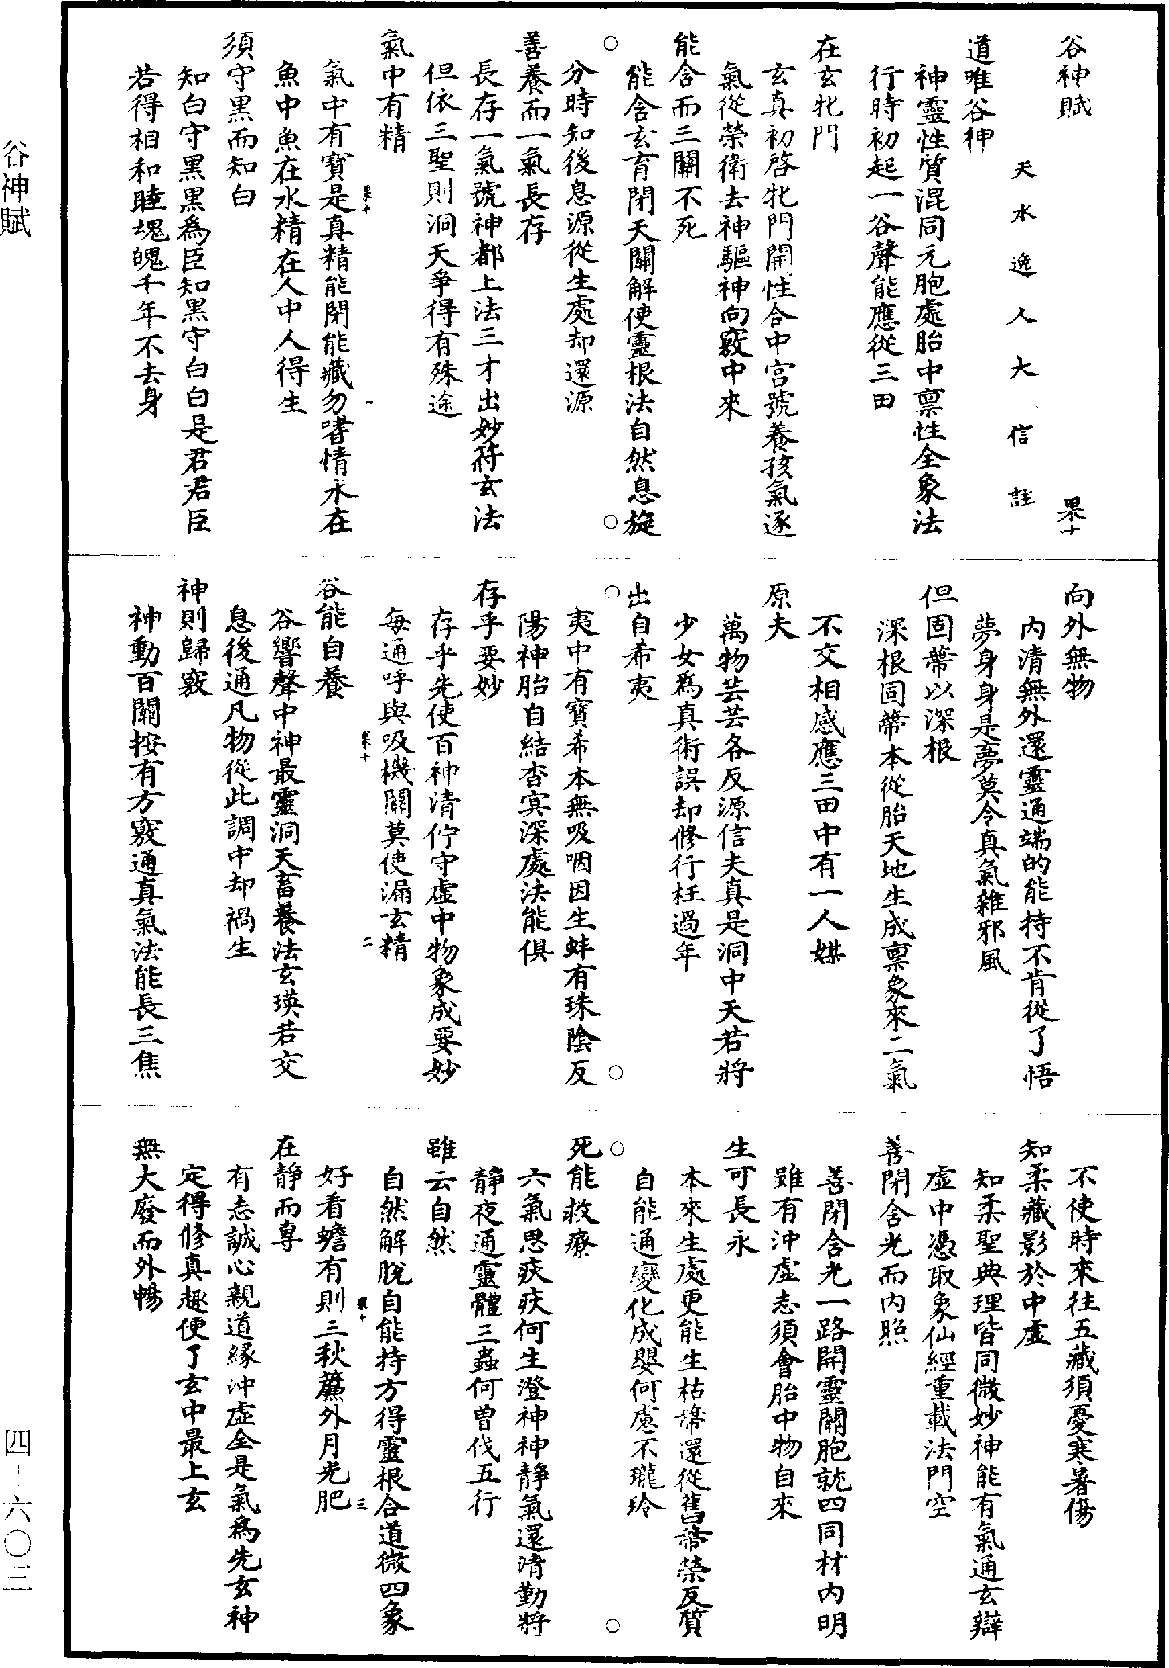 谷神賦
果十
天水逸人大信註
道唯谷神
神靈性質混同元胞處胎中禀性全象法
行時初起一谷聲能應從三田
在玄牝門
玄真初啓牝門開性合中宮號養孩氣逐
氣從榮衛去神驅神向竅中來
能含而三關不死
能含玄育閉天關解使靈根法自然息旋
分時知後息源從生處却還源
善養而一氣長存
長存一氣號神都上法三才出妙符玄法
但依三聖則洞天爭得有殊途
氣中有精
果十
一
氣中有寶是真精能閉能藏勿嗜情水在
魚中魚在水精在人中人得生
須守黑而知白
知白守黑黑爲臣知黑守白白是君君臣
若得相和睦塊魄千年不去身
向外無物
內清無外還靈通端的能持不肯從了悟
夢身身是夢莫令真氣雜邪風
但固蔕以深根
深根固蔕本從胎天地生成禀象來二氣
不交相感應三田中有一人媒
原夫
萬物芸芸各反源信夫真是洞中天若將
少女爲真術誤却修行枉過年
出自希夷
夷中有寶希本無吸咽因生蚌有珠陰反
陽神胎自結杳冥深處法能俱
存乎要妙
存乎先使百神清佇守虛中物象成要妙
每通呼與吸機關莫使漏玄精
果十
二
谷能自養
谷響聲中神最靈洞天畜養法玄瑛若交
息後通凡物從此調中却禍生
神則歸竅
神動百關按有方竅通真氣法能長三焦
不使時來往五藏須憂寒暑傷
知柔藏影於中虛
知柔聖典理皆同微妙神能有氣通玄辯
虛中憑取象仙經重載法門空
善閉含光而內照
善閉含光一路開靈關胞就四同材內明
雖有沖虛志須會胎中物自來
生可長永
本來生處更能生枯蔕還從舊蔕榮反質
自能通變化成嬰何慮不瓏玲
死能救療
六氣思疾疾何生澄神神靜氣還清勤將
靜夜通靈體三蟲何曾伐五行
雖云自然
自然解脫自能持方得靈根合道微四象
好看蟾有則三秋簾外月光肥
果十
三
在靜而專
有志誠心親道緣沖虛全是氣爲先玄神
定得修真趣便了玄中最上玄
無大廢而外暢
谷神賦
四-六〇三